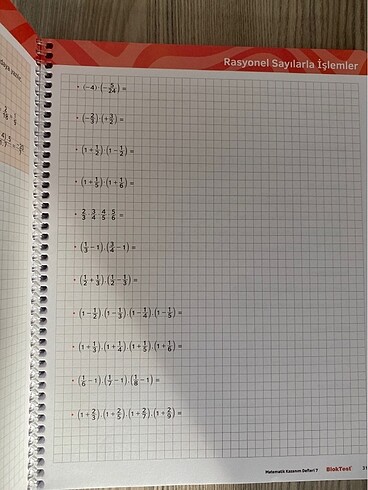 Rasyonel Sayılarla İşlemler
• (-4)·(-5/24) =
• (-2/3)·(+3/2) =
• (1+1/2)·(1-1/2) =
• (1+1/5)·(1+1/6) =
• 2/3·3/4·4/5·5/6 =
• (1/3-1)·(3/4-1) =
• (1/2+1/3)·(1/2-1/3) =
• (1-1/2)·(1-1/3)·(1-1/4)·(1-1/5) =
• (1+1/3)·(1+1/4)·(1+1/5)·(1+1/6) =
• (1/6-1)·(1/7-1)·(1/8-1) =
• (1+2/3)·(1+2/5)·(1+2/7)·(1+2/9) =
Matematik Kazanım Defteri 7 BlokTest 31